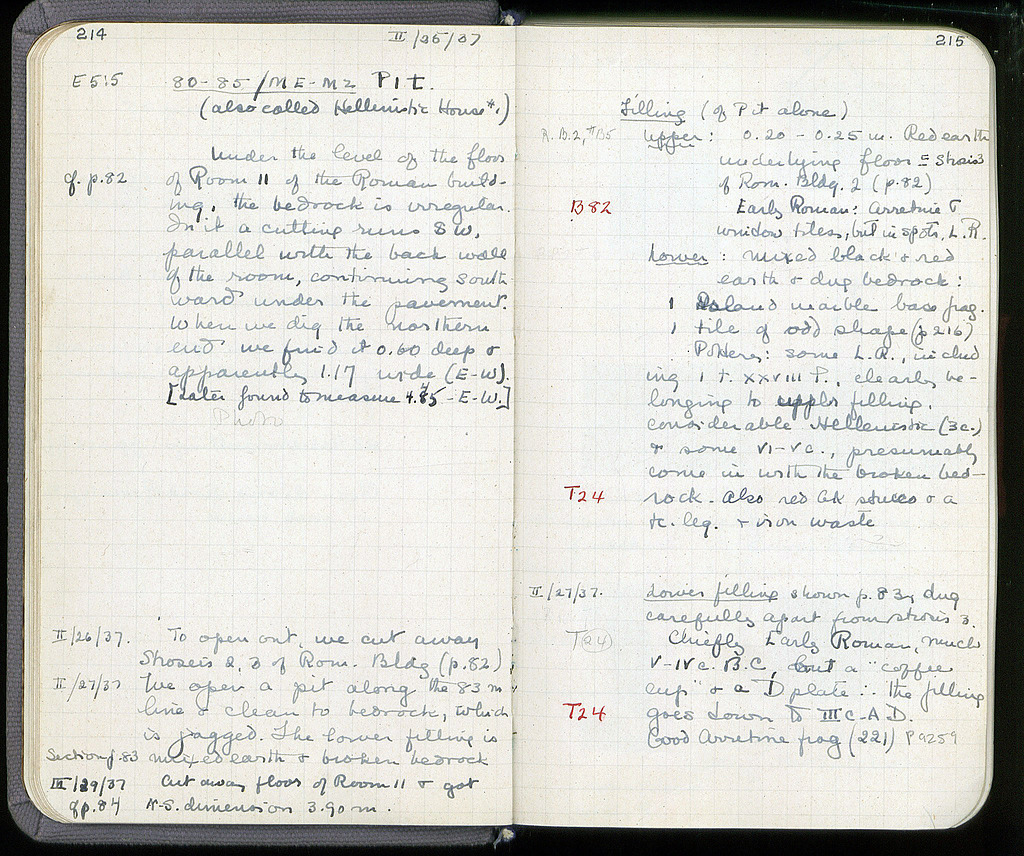 214
II/25/37
E 515 80-85/ME-MZ PIT.
(also called Hellenistic House*.)
Under the level of the floor
cf. p.82 of Room 11 of the Roman build-
ing, the bedrock is irregular.
In it a cutting runs SW,
parallel with the back wall
of the room, continuing south
ward under the pavement.
When we dig the northern
end we find it 0.60 deep &
apparently 1.17 wide (E-W).
[Later found to measure - E-W.]
Photo
II/26/37. To open out, we cut away
Stroseis 2, 3 of Rom. Bldg (p.82)
II/27/37 We open a pit along the 83 m
line & clean to bedrock, which
is jagged. The lower filling is
Section p.83 mixed earth & broken bedrock
III/29/37 Cut away floor of Room 11 & got
cf p.84 N-S. dimension 3.90 m.
215
Filling (of Pit alone)
upper: 0.20 - 0.25 m. Red earth
underlying floor = Strosis 3
of Rom. Bldg. 2 (p.82)
B82 Early Roman: Arretine &
window tiles, but in spots, L.R.
Lower: mixed black & red
earth & dug bedrock:
1 Island marble base frag.
1 tile of odd shape (p 216)
Pottery: some L.R., includ
ing 1 t. XXVIII P., clearly be-
longing to upper filling.
considerable Hellenistic (3c.)
& some VI-VC., presumably
come in with the broken bed-
T24 rock. Also red Gk stucco & a
tc. leg. & iron waste
II/27/37. Lower filling shown p.83, dug
carefully apart from strosis 3.
T24 Chiefly Early Roman, much
V-IVC. B.C, but a "coffee
cup" & a D plate ∴ the filling
T24 goes down to III C. A.D.
Good Arretine frag (221) P9259